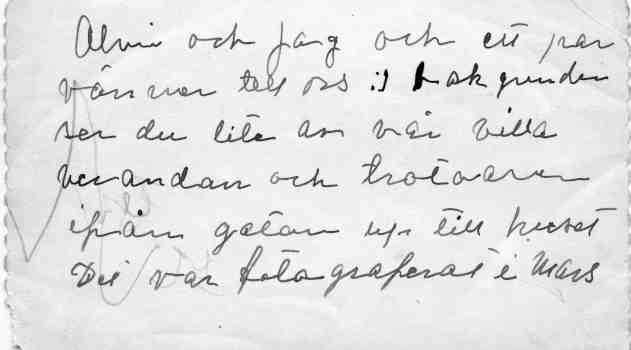 Alvin och jag och ett par
vänner till oss i bakgrunden
ser du lite av vår villa
verandan och trotoaren
ifrån gatan upp till huset
Det var fotograferat i Mars